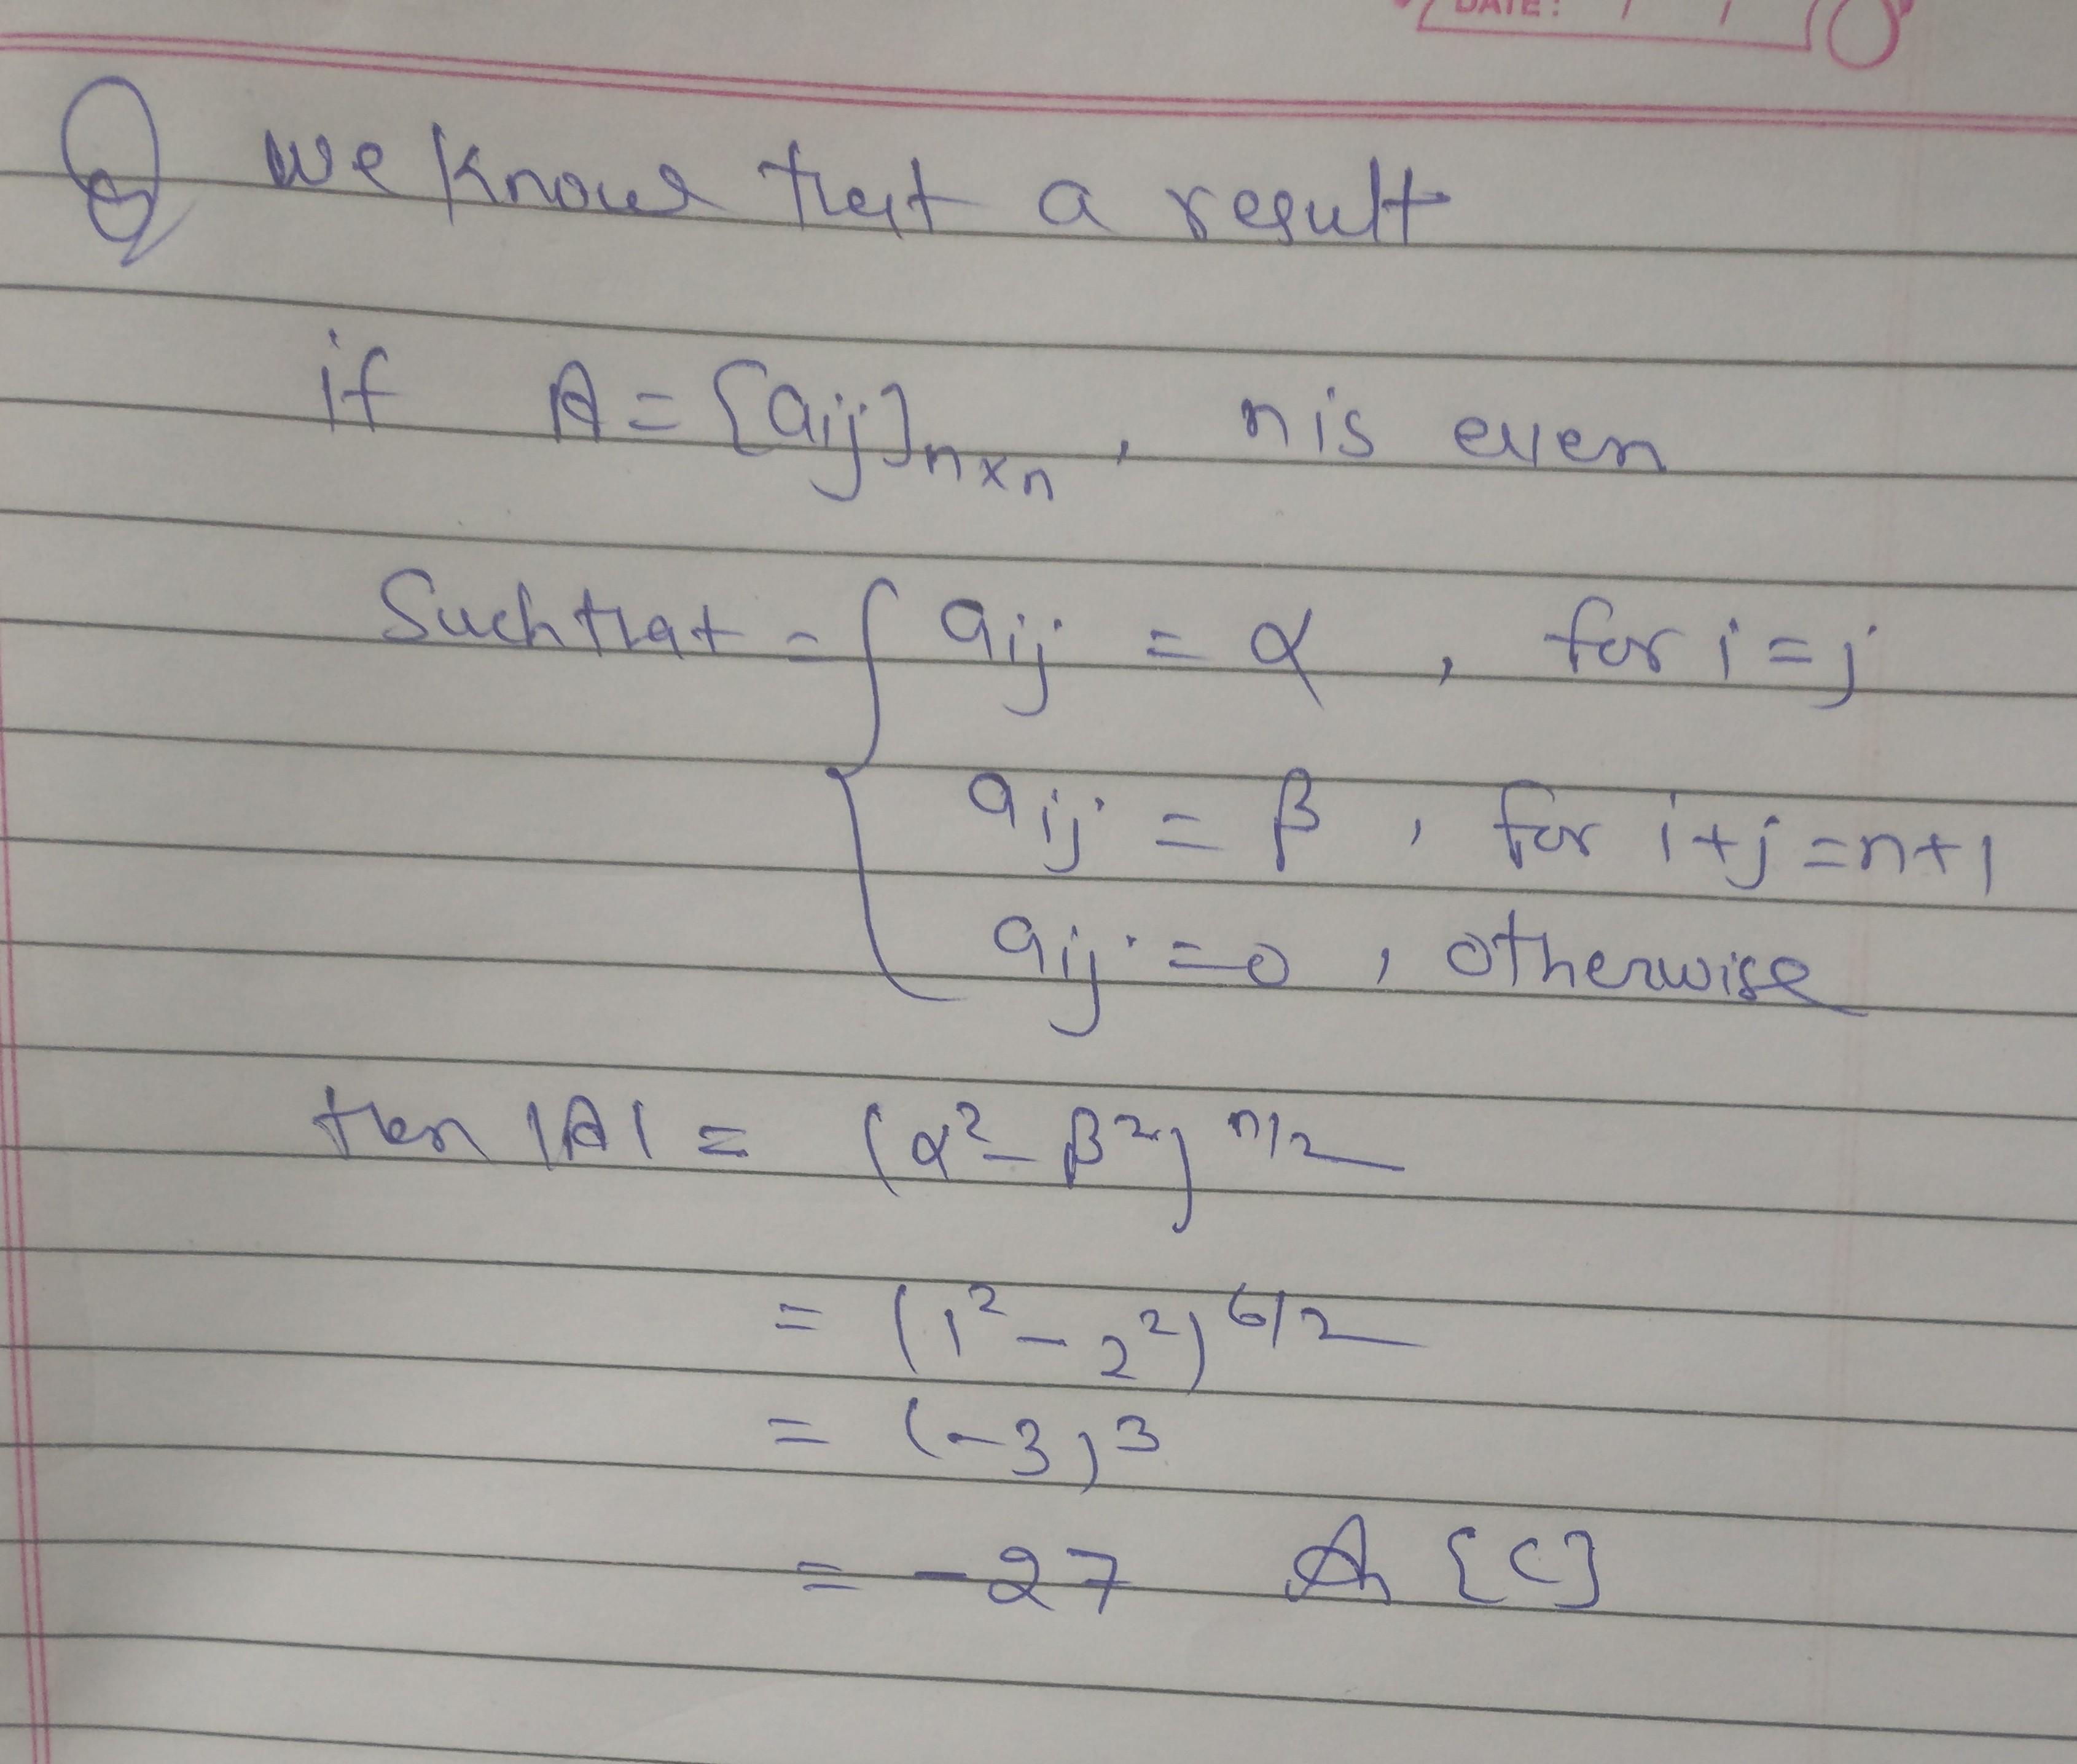 DATE: / /
Q we know that a result
if A = [aij]n×n , n is even
Such that = { aij = α , for i = j
aij = β , for i+j = n+1
aij = 0 , otherwise
then |A| = (α² - β²)^n/2
= (1² - 2²)^6/2
= (-3)³
= -27 [C]